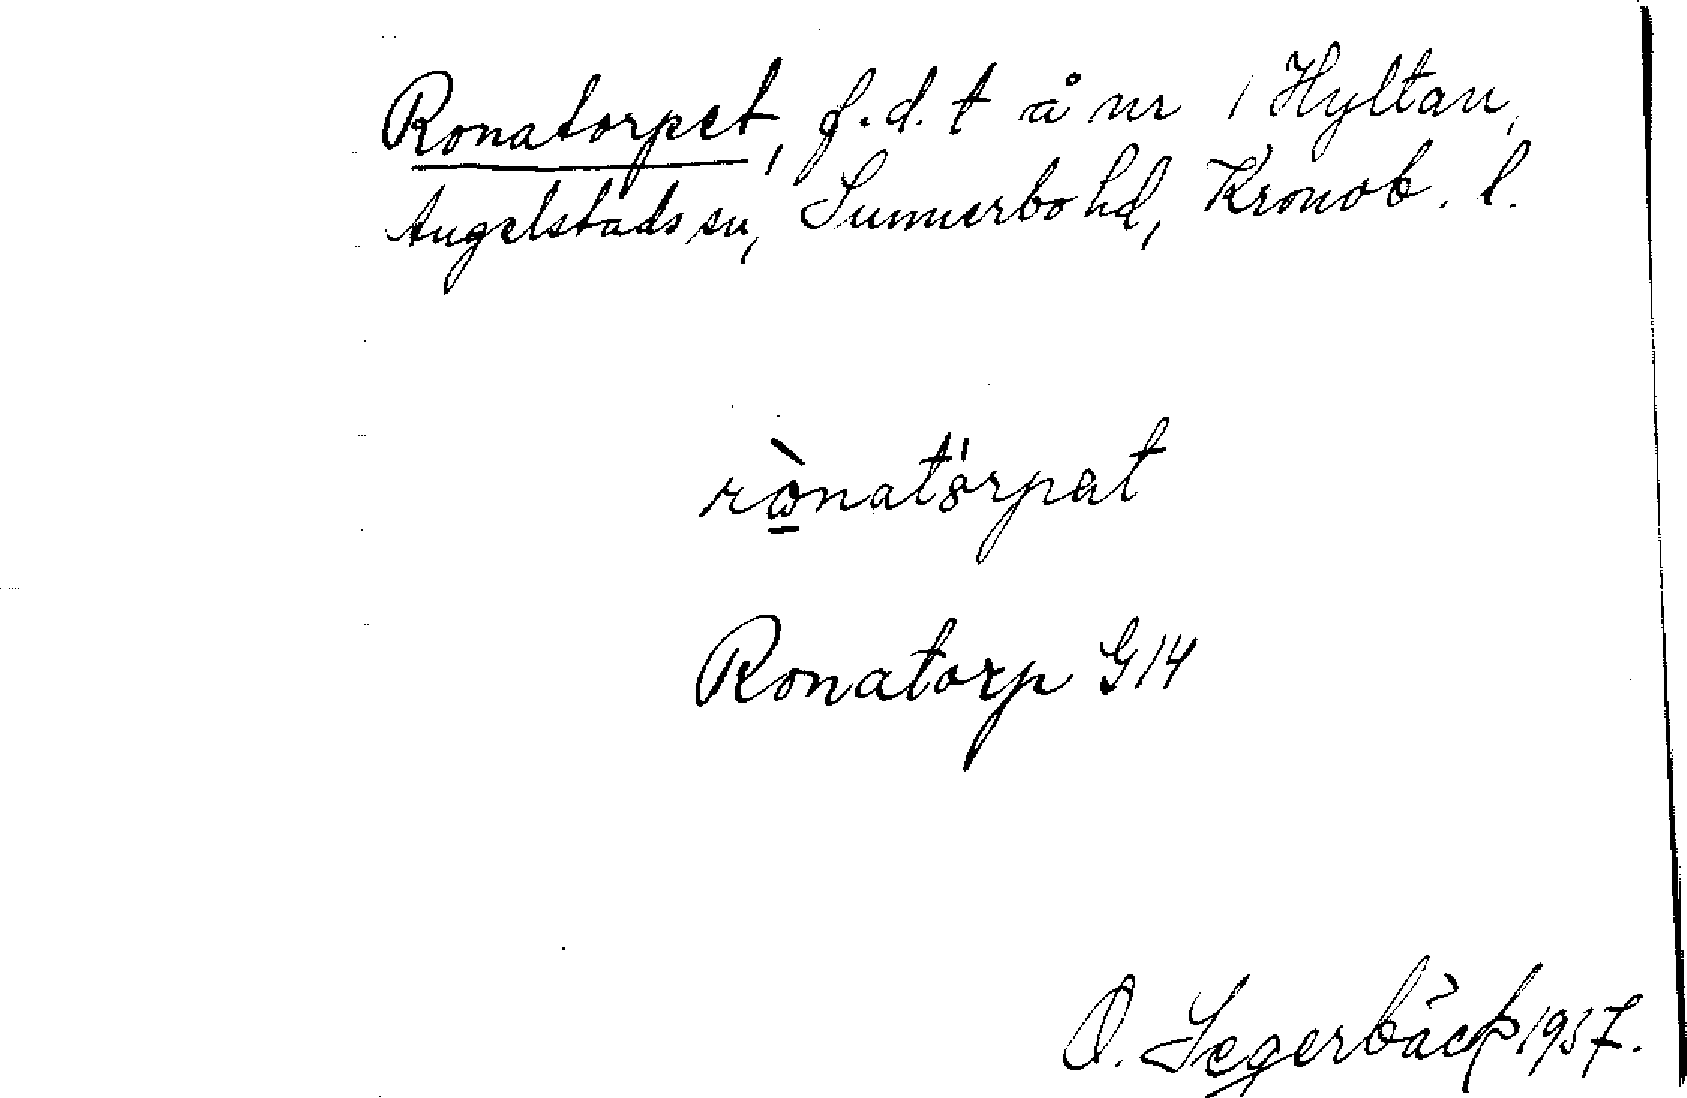 Ronatorpet, f.d. t å nr 1 Hyltan,
Angelstads sn, Sunnerbo hd, Kronob. l.
rònatórpat
Ronatorp G14
O. Segerbäck 1937.